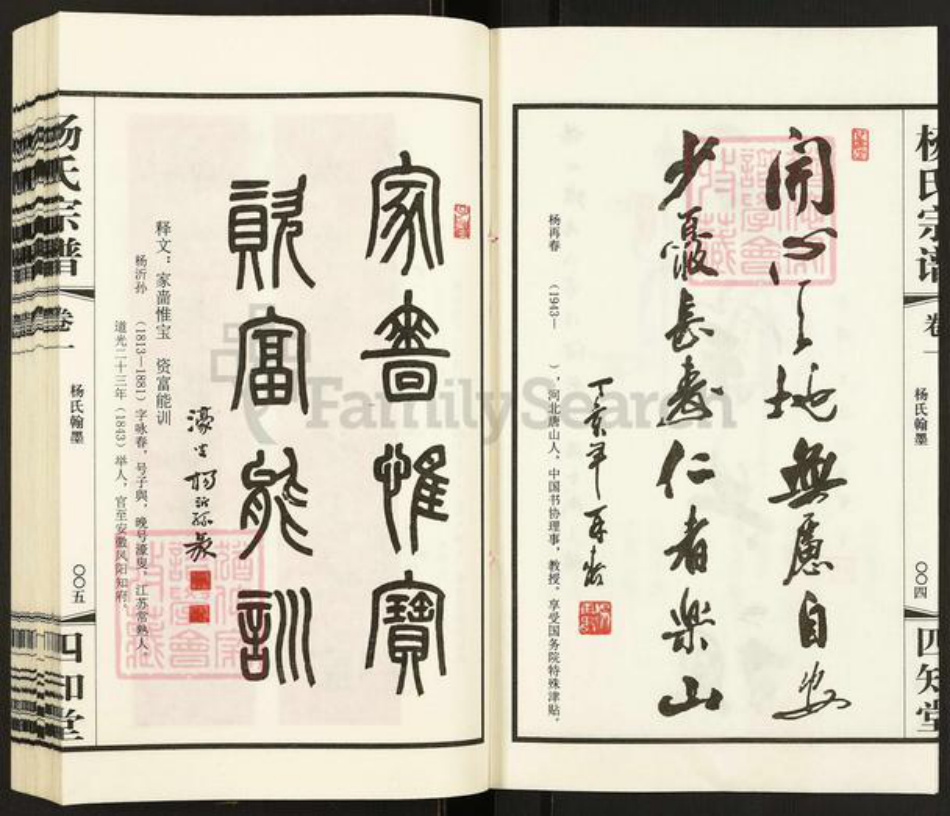 杨氏宗谱
卷一
杨氏翰墨
〇〇四
四知堂
開心天地無慮自安
少憂長壽仁者樂山
丁亥年 再春
杨再春 (1943— ),河北唐山人,中国书协理事、教授,享受国务院特殊津贴。
家嗇惟寶
資富能訓
濠叟楊沂孫篆
释文:家啬惟宝 资富能训
杨沂孙 (1813—1881)字咏春,号子與,晚号濠叟,江苏常熟人,
道光二十三年(1843)举人,官至安徽凤阳知府。
杨氏宗谱
卷一
杨氏翰墨
〇〇五
四知堂
FamilySearch